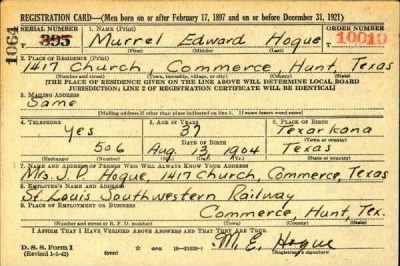 REGISTRATION CARD—(Men born on or after February 17, 1897 and on or before December 31, 1921)
SERIAL NUMBER 1. NAME (Print) ORDER NUMBER
1064 395 Murrel Edward Hogue 10019
(First) (Middle) (Last)
2. PLACE OF RESIDENCE (Print)
1417 Church Commerce, Hunt, Texas
(Number and street) (Town, township, village, or city) (County) (State)
[THE PLACE OF RESIDENCE GIVEN ON THE LINE ABOVE WILL DETERMINE LOCAL BOARD
JURISDICTION; LINE 2 OF REGISTRATION CERTIFICATE WILL BE IDENTICAL]
3. MAILING ADDRESS
Same
[Mailing address if other than place indicated on line 2. If same insert word same]
4. TELEPHONE 5. AGE IN YEARS 6. PLACE OF BIRTH
Yes 37 Texarkana
DATE OF BIRTH (Town or county)
506 Aug. 13, 1904 Texas
(Exchange) (Number) (Mo.) (Day) (Yr.) (State or country)
7. NAME AND ADDRESS OF PERSON WHO WILL ALWAYS KNOW YOUR ADDRESS
Mrs. J.P. Hogue, 1417 Church, Commerce, Texas
8. EMPLOYER'S NAME AND ADDRESS
St. Louis Southwestern Railway
9. PLACE OF EMPLOYMENT OR BUSINESS
Commerce, Hunt, Tex.
(Number and street or R. F. D. number) (Town) (County) (State)
I AFFIRM THAT I HAVE VERIFIED ABOVE ANSWERS AND THAT THEY ARE TRUE.
D. S. S. Form 1
(Revised 1-1-42) M. E. Hogue
(Registrant's signature)